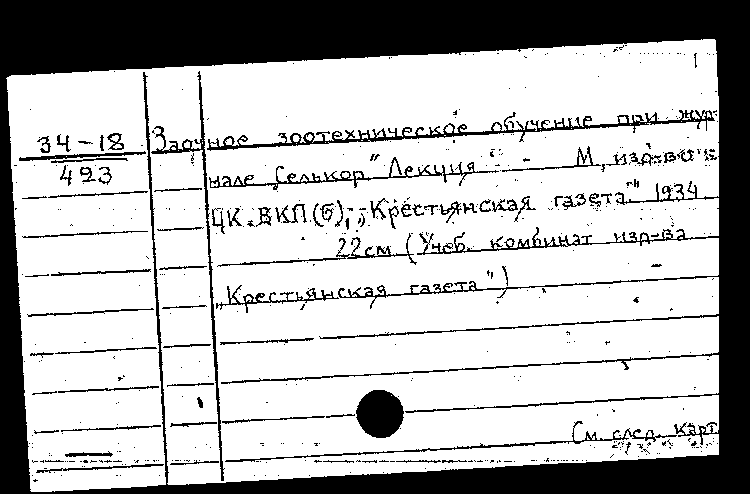 34-18
423
Заочное зоотехническое обучение при жур-
нале Селькор "Лекция" - М, изд-во
ЦК. ВКП(б), „Крестьянская газета" 1934
22см (Учеб. комбинат изд-ва
„Крестьянская газета")
См. след. карт